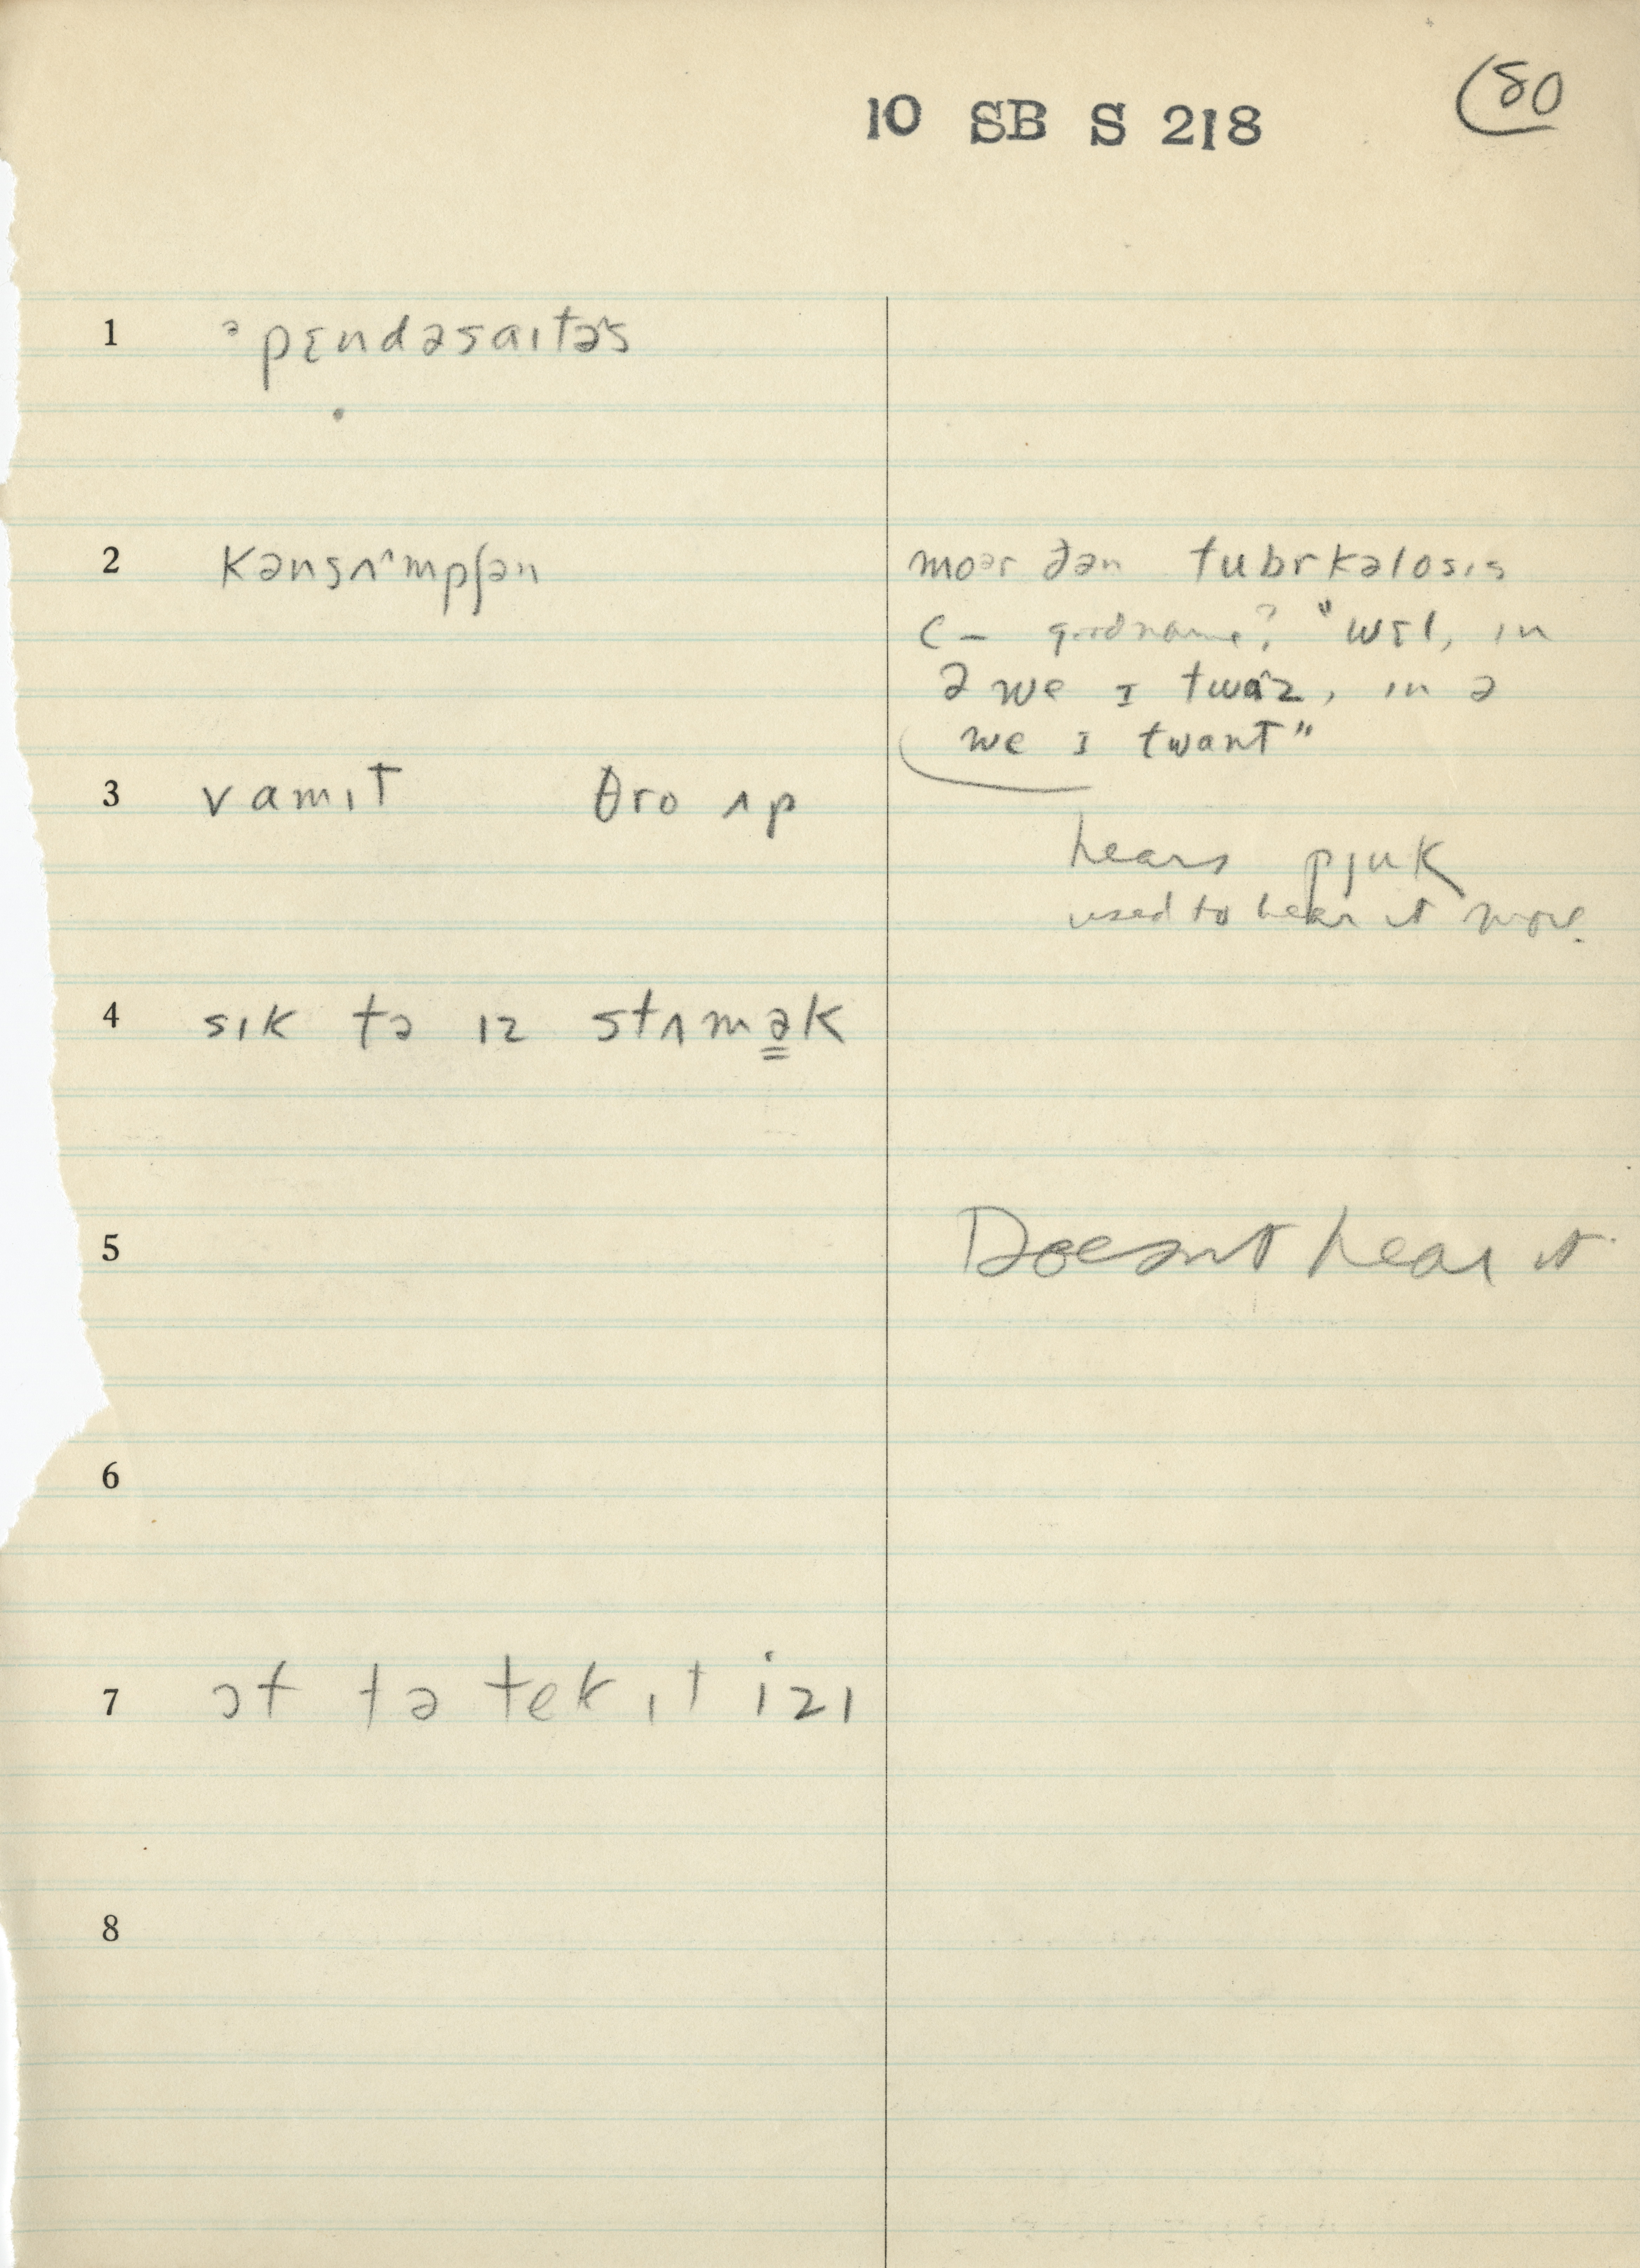 80
10 SB S 218
1 ᵊpɛndəsaɪtəs
2 kənsʌmpʃən
moᵊr ðən tubrkəlosɪs
C – good name? "wɛl, in
ə we ɪ twəz, ɪn ə
we ɪ twant"
3 vamɪt θro ʌp
hears pjuk
used to hear it more.
4 sɪk tə ɪz stʌmək
5 Doesn't hear it
6
7 ɔt tə tek ɪt izɪ
8